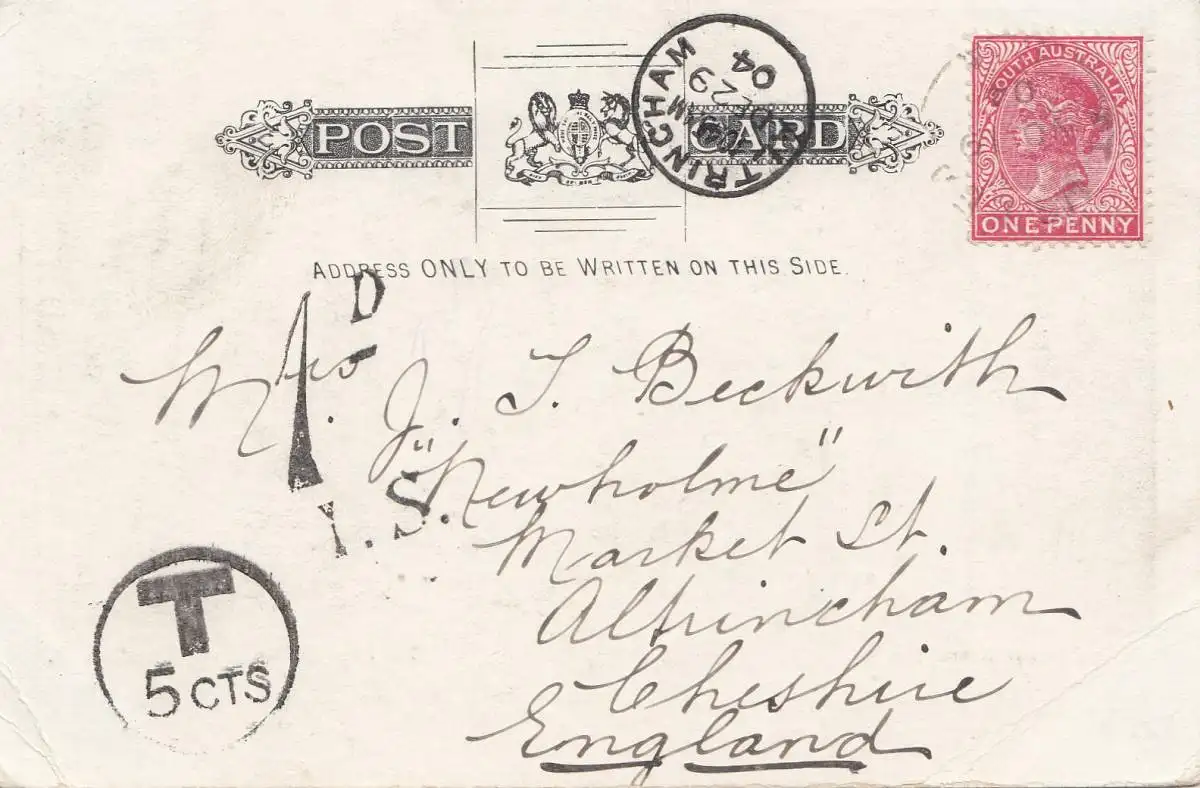 POST CARD
ALTRINCHAM
29
04
SOUTH AUSTRALIA
ONE PENNY
ADDRESS ONLY TO BE WRITTEN ON THIS SIDE.
1D
I.S.
Mrs. J. T. Beckwith
"Newholme"
Market St.
Altrincham
Cheshire
England
T
5 CTS